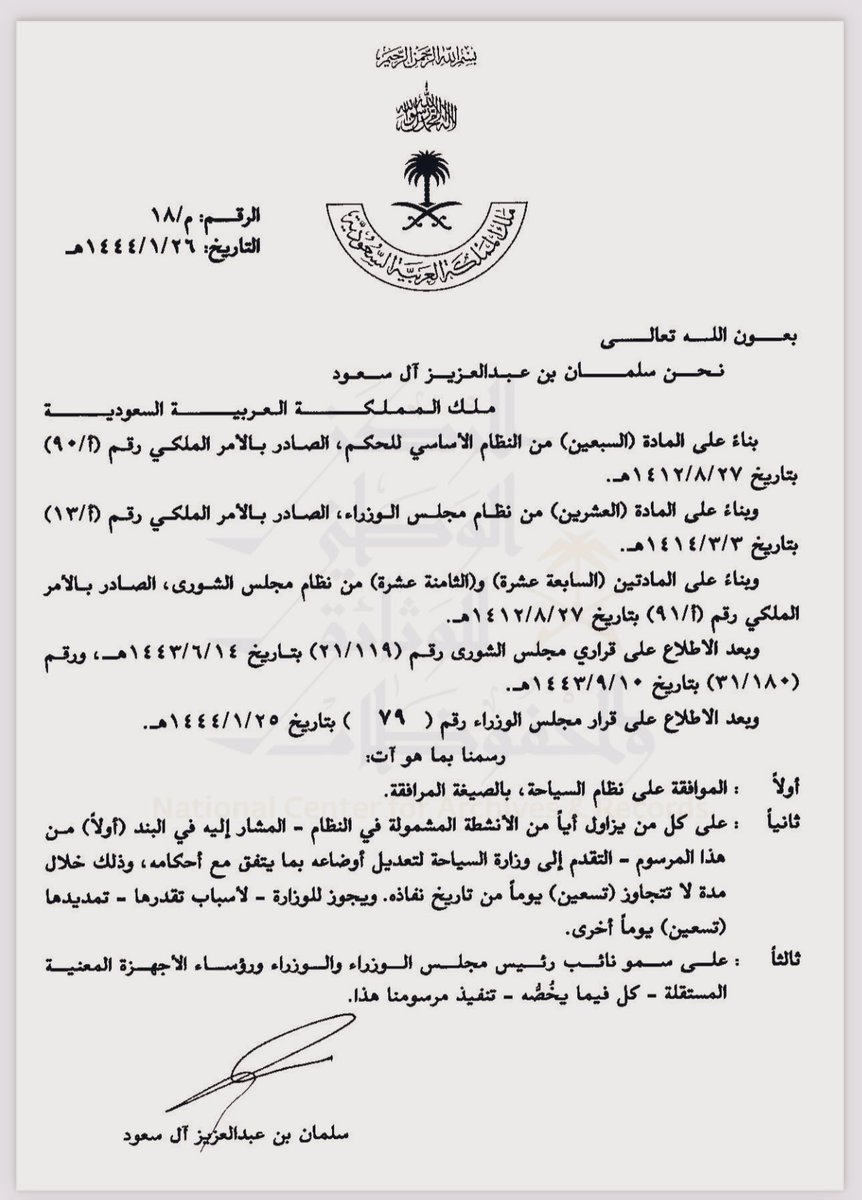 بسم الله الرحمن الرحيم
لا إله إلا الله محمد رسول الله
ملك المملكة العربية السعودية
الرقـــم: م/١٨
التاريخ: ١٤٤٤/١/٢٦هـ
بعـــون اللـــه تعالـــى
نحـن سلمـــان بن عبدالعزيـز آل سعـود
ملـك الـمـمـلـكـــة الـعـربيـــة السعوديـــة
بناءً على المادة (السبعين) من النظام الأساسي للحكم، الصادر بـالأمر الملكـي رقـم (أ/٩٠)
بتاريخ ١٤١٢/٨/٢٧هـ.
وبناءً على المادة (العشرين) من نظام مجلس الـوزراء، الصادر بـالأمر الملكـي رقـم (أ/١٣)
بتاريخ ١٤١٤/٣/٣هـ.
وبناءً على المادتين (السابعة عشرة) و(الثامنة عشرة) من نظام مجلس الشورى، الصادر بـالأمر
الملكي رقم (أ/٩١) بتاريخ ١٤١٢/٨/٢٧هـ.
وبعد الاطلاع على قراري مجلس الشورى رقـم (٢١/١١٩) بتـاريخ ١٤٤٣/٦/١٤هـ، ورقـم
(٣١/١٨٠) بتاريخ ١٤٤٣/٩/١٠هـ.
وبعد الاطلاع على قرار مجلس الوزراء رقم ( ٧٩ ) بتاريخ ١٤٤٤/١/٢٥هـ.
رسمنا بما هو آت:
أولاً : الموافقة على نظام السياحة، بالصيغة المرافقة.
ثانياً : على كل من يزاول أياً من الأنشطة المشمولة في النظام - المشار إليه في البند (أولاً) مـن
هذا المرسوم - التقدم إلى وزارة السياحة لتعديل أوضاعه بما يتفق مع أحكامه، وذلك خلال
مدة لا تتجاوز (تسعين) يوماً من تاريخ نفاذه. ويجوز للوزارة - لأسباب تقدرها - تمديدها
(تسعين) يوماً أخرى.
ثالثاً : علـى سمـو نائـب رئـيس مجلـس الـوزراء والـوزراء ورؤسـاء الأجهـزة المعنيـة
المستقلة - كل فيما يخُصُّه - تنفيذ مرسومنا هذا.
سلمان بن عبدالعزيز آل سعود
المركز
الوطني
للوثائق
والمحفوظات
National Center for Archives & Records